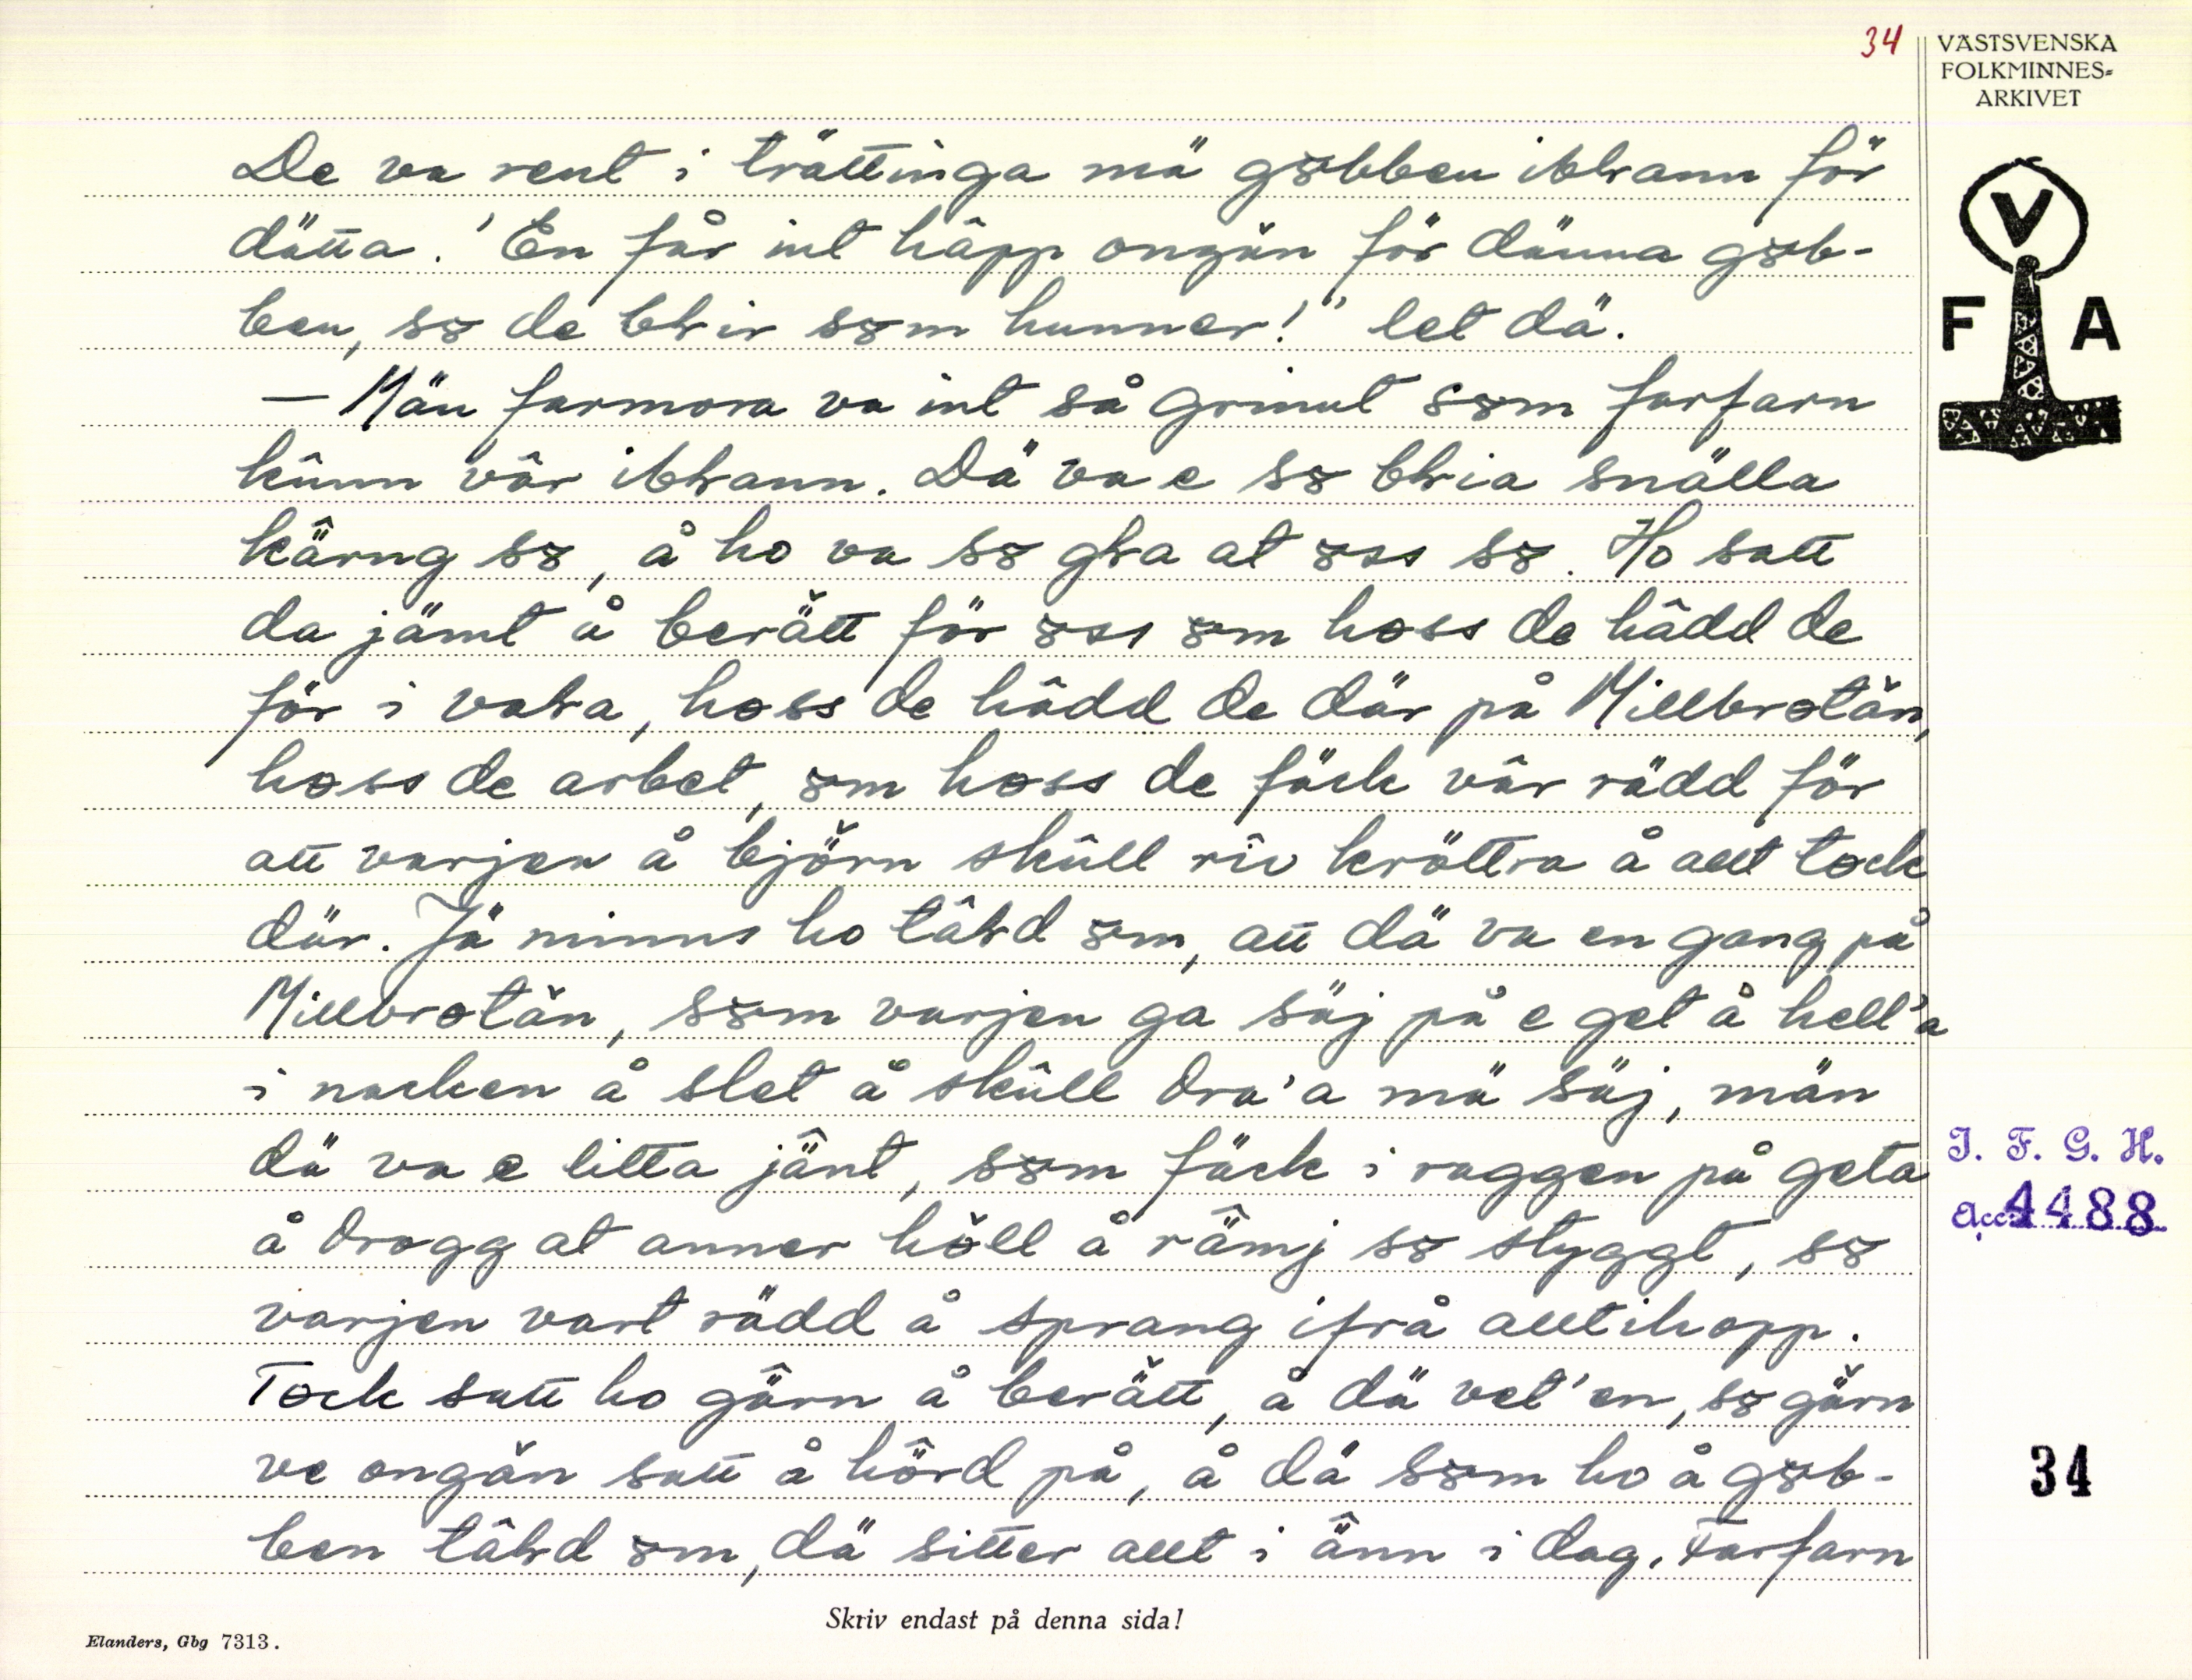 34
VÄSTSVENSKA
FOLKMINNES=
ARKIVET
V
F A
De va rent i trättinga mä gȣbben iblann för
dätta. 'En får int hâpp ongän för dänna gȣb-
ben, sȣ de blir sȣm hunner!" let dä.
— Män farmora va int så grinut sȣm farfarn
kûnn vâr iblann. Dä va e sȣ blia snälla
kärng sȣ, å ho va sȣ gla at ȣss sȣ. Ho satt
da jämt å berätt för ȣss ȣm hoss de hâdd de
för i vala, hoss de hâdd de där på Millbrotän,
hoss de arbet, ȣm hoss de fäck vâr rädd för
att varjen å björn skûll rîv kröttra å allt tock
där. Jä minns ho tâld ȣm, att dä va en gang på
Millbrotän, sȣm varjen ga säj på e get å hell'a
i nacken å slet å skûll dra'a mä säj, män
dä va e litta jänt, sȣm fäck i raggen på geta
å drogg at anner höll å râmj sȣ styggt, sȣ
varjen vart rädd å sprang ifrå alltihopp.
Tock satt ho gärn å berätt, å dä vet'en, sȣ gärn
ve ongän satt å hörd på, å dä sȣm ho å gȣb-
ben tâld ȣm, dä sitter allt i änn i dag. Farfarn
I. F. G. H.
Acc. 4488
34
Skriv endast på denna sida!
Elanders, Gbg 7313.